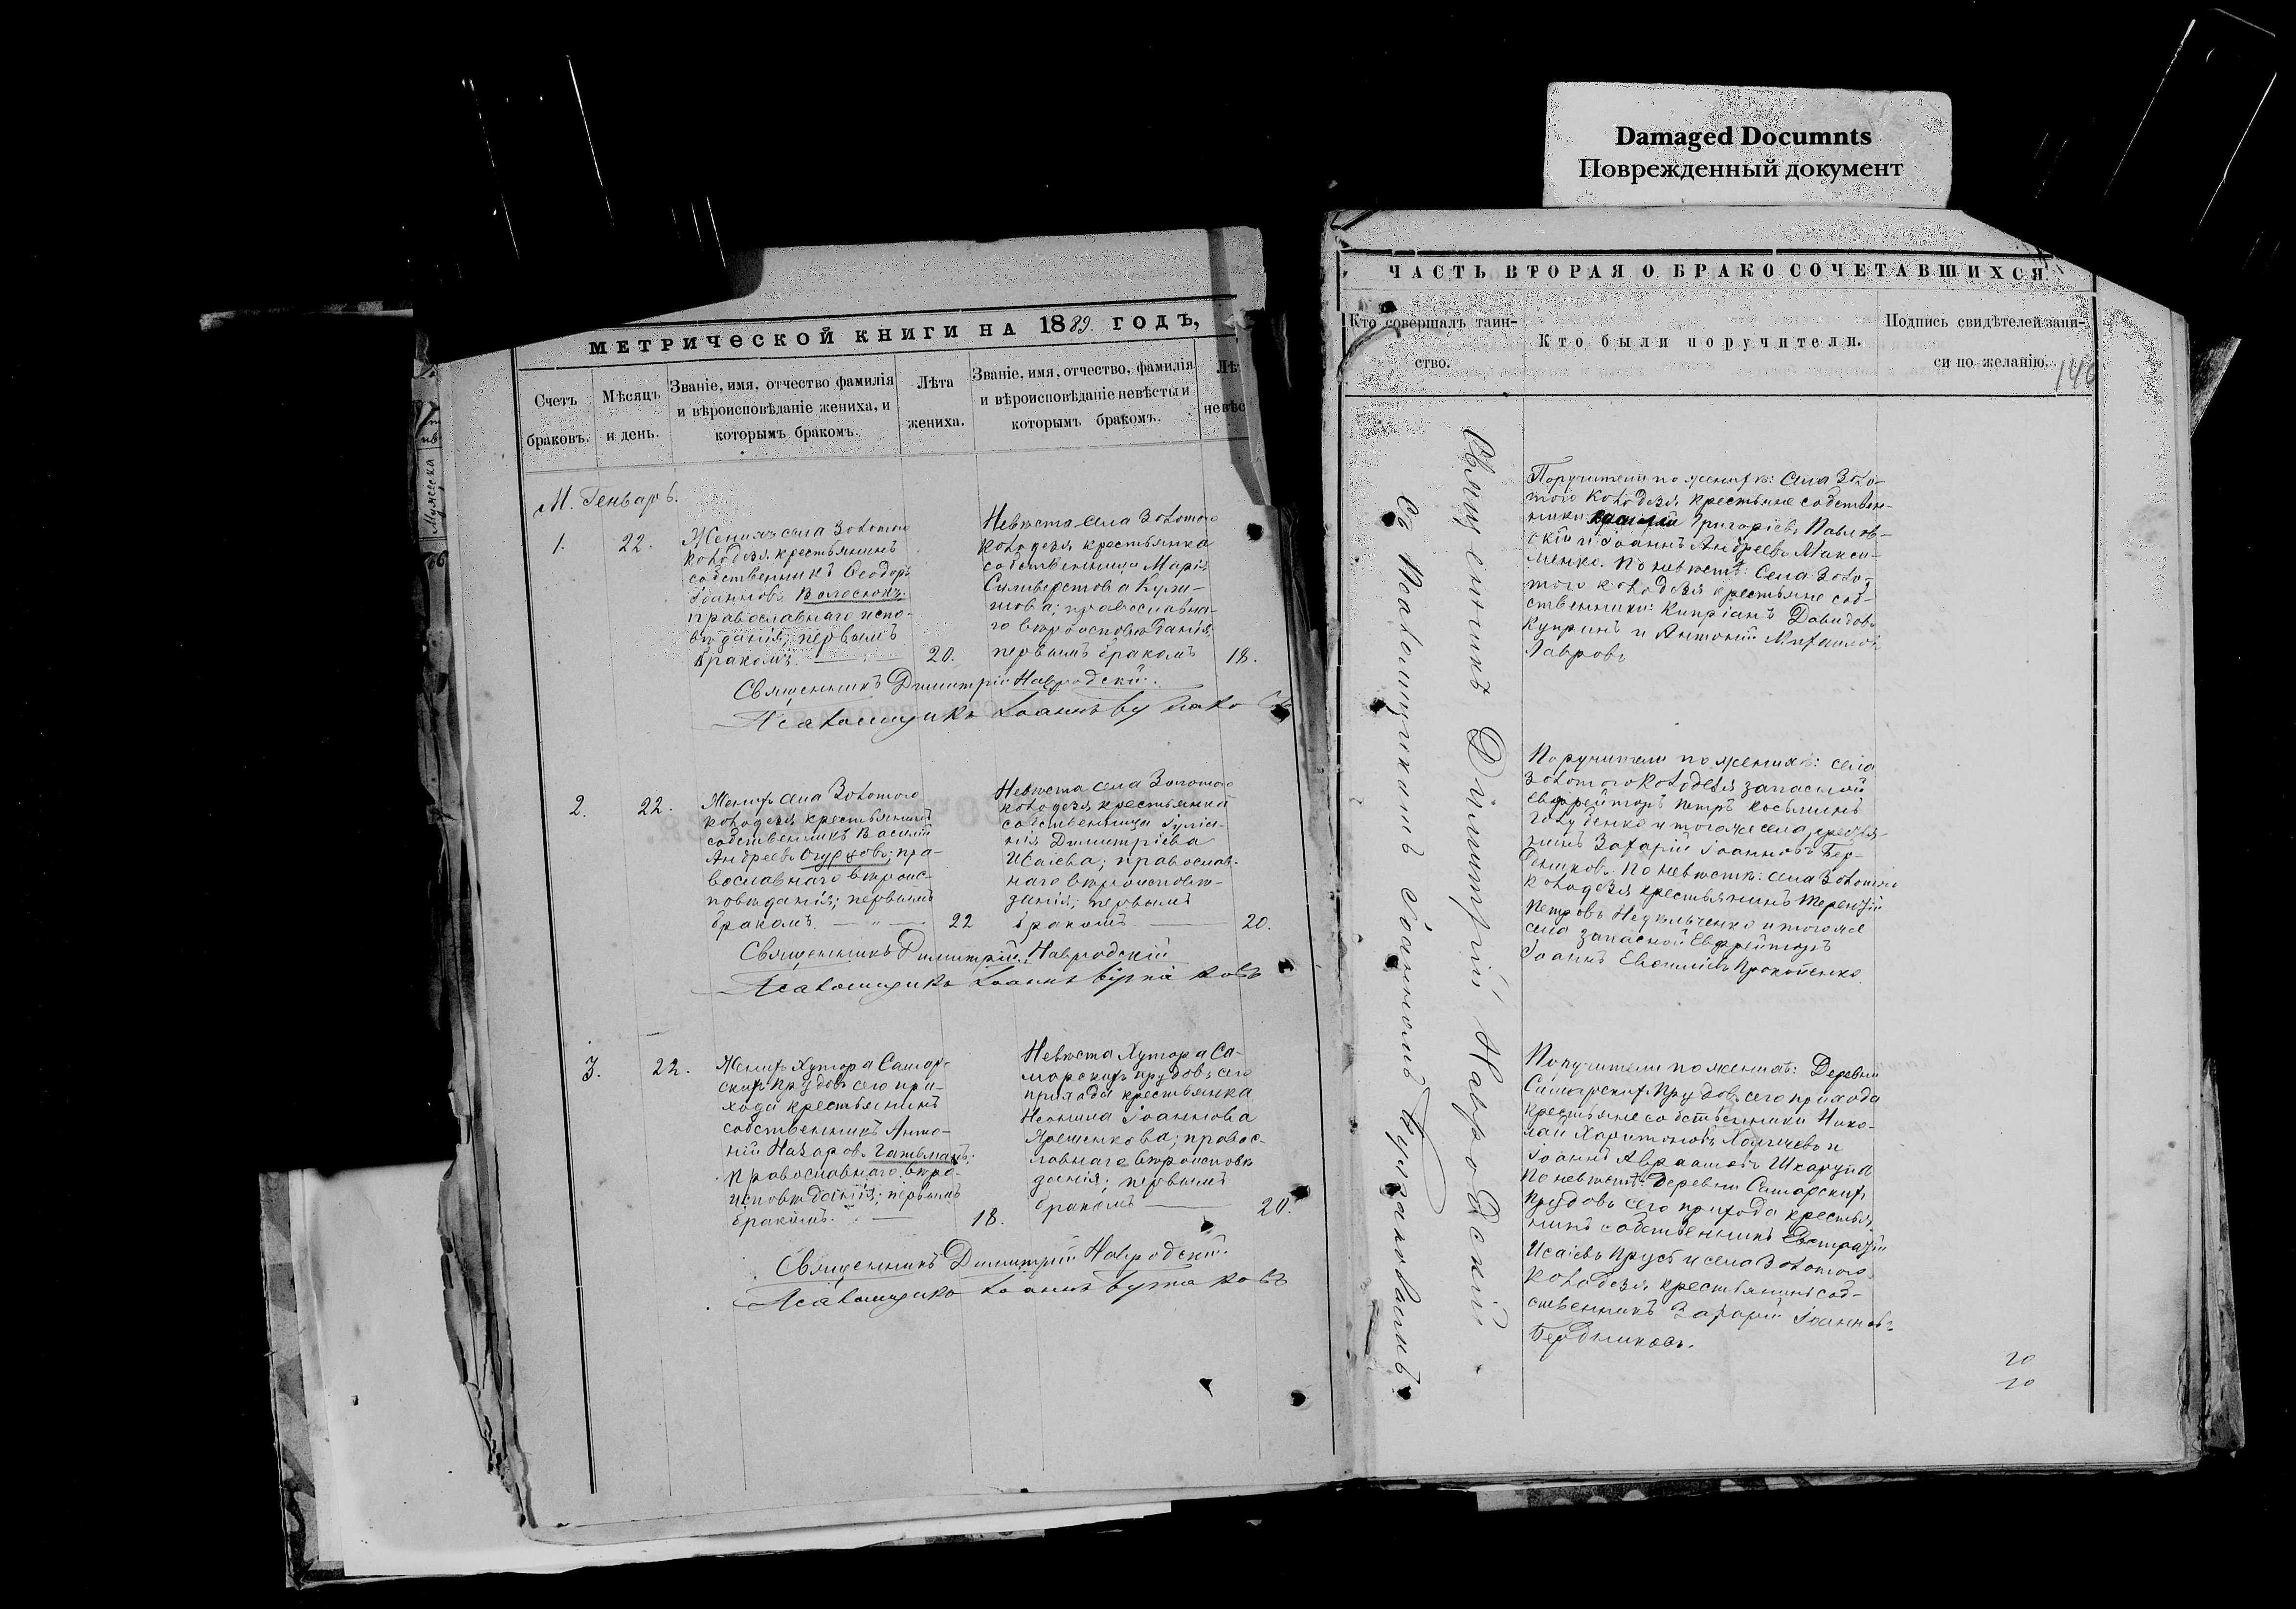 Damaged Documnts
Поврежденный документ
МЕТРИЧЕСКОЙ КНИГИ НА 1889. ГОДЪ,
Счетъ браковъ.
Мѣсяцъ и день.
Званіе, имя, отчество фамилія
и вѣроисповѣданіе жениха, и
которымъ бракомъ.
Лѣта
жениха.
Званіе, имя, отчество, фамилія
и вѣроисповѣданіе невѣсты и
которымъ бракомъ.
Лѣ
невѣс
М. Генварь.
1.
22.
Женихъ села Золотого
Колодезя крестьянинъ
собственникъ Ѳеодоръ
Іоанновъ Волосюкъ:
православнаго испо-
вѣданія; первымъ
бракомъ.
20.
Невѣста села Золотого
Колодезя крестьянка
собственница Марія
Сильверстова
православна-
го вѣроисповѣданія,
первымъ бракомъ
18.
Священникъ Димитрій Навродскій.
Псаломщикъ Іоаннъ
2.
22.
Женихъ села Золотого
колодезя крестьянинъ
собственникъ Василій
Андреевъ Огурцовъ; пра-
вославнаго вѣроис-
повѣданія; первымъ
бракомъ.
22
Невѣста села Золотого
колодезя крестьянка
собственница Іуліа-
нія Димитріева
Исаіева; православ-
наго вѣроисповѣ-
данія; первымъ
бракомъ
20.
Священникъ Димитрій Навродскій
Псаломщикъ Іоаннъ
3.
22.
Женихъ Хутора Самар-
скихъ Прудовъ сего при-
хода крестьянинъ
собственникъ Анто-
ній Назаровъ Гатьманъ;
Православнаго вѣро-
исповѣданія; первымъ
бракомъ.
18.
Невѣста Хутора Са-
марскихъ прудовъ сего
прихода крестьянка
Неонила Іоаннова
правос-
лавнаго вѣроисповѣ
данія; первымъ
бракомъ
20.
Священникъ Димитрій Навродскій.
Псаломщикъ Іоаннъ
ЧАСТЬ ВТОРАЯ О БРАКОСОЧЕТАВШИХСЯ.
Кто совершалъ таин-
ство.
Кто были поручители.
Подпись свидѣтелей запи-
си по желанію.
Священникъ Димитрій Навродскій.
Со Псаломщикомъ Іоанномъ
Поручители по женихѣ: Села Золо-
того Колодезя крестьяне собствен-
ники Григоріевъ Павлов-
скій и Іоаннъ Андреевъ Макси-
менко. По невѣстѣ: Села Золо-
того колодезя крестьяне соб-
ственники: Кипріанъ Давидовъ
Купринъ и Антоній Михаиловъ
Лавровъ
Поручители по женихѣ: села
Золотого Колодезя запасной
Ефрейторъ Петръ Косьминъ
Голубенко и того же села, крестья-
нинъ Захарій Іоанновъ Бер-
дниковъ. По невѣстѣ: села Золотого
Колодезя крестьянинъ Терентій
Петровъ Недильченко и того же
села запасной Ефрейторъ
Іоаннъ Прокопенко.
Поручители по женихѣ: Деревни
Самарскихъ Прудовъ сего прихода
крестьяне собственники Нико-
лай Харитоновъ и
Іоаннъ Авраамовъ Шкарупа
По невѣстѣ: Деревни Самарскихъ
Прудовъ сего прихода крестья-
нинъ собственникъ Евстратій
Исаіевъ Прусъ и села Золотого
Колодезя крестьянинъ соб-
ственникъ Захарій Іоанновъ
Бердниковъ.
20
20